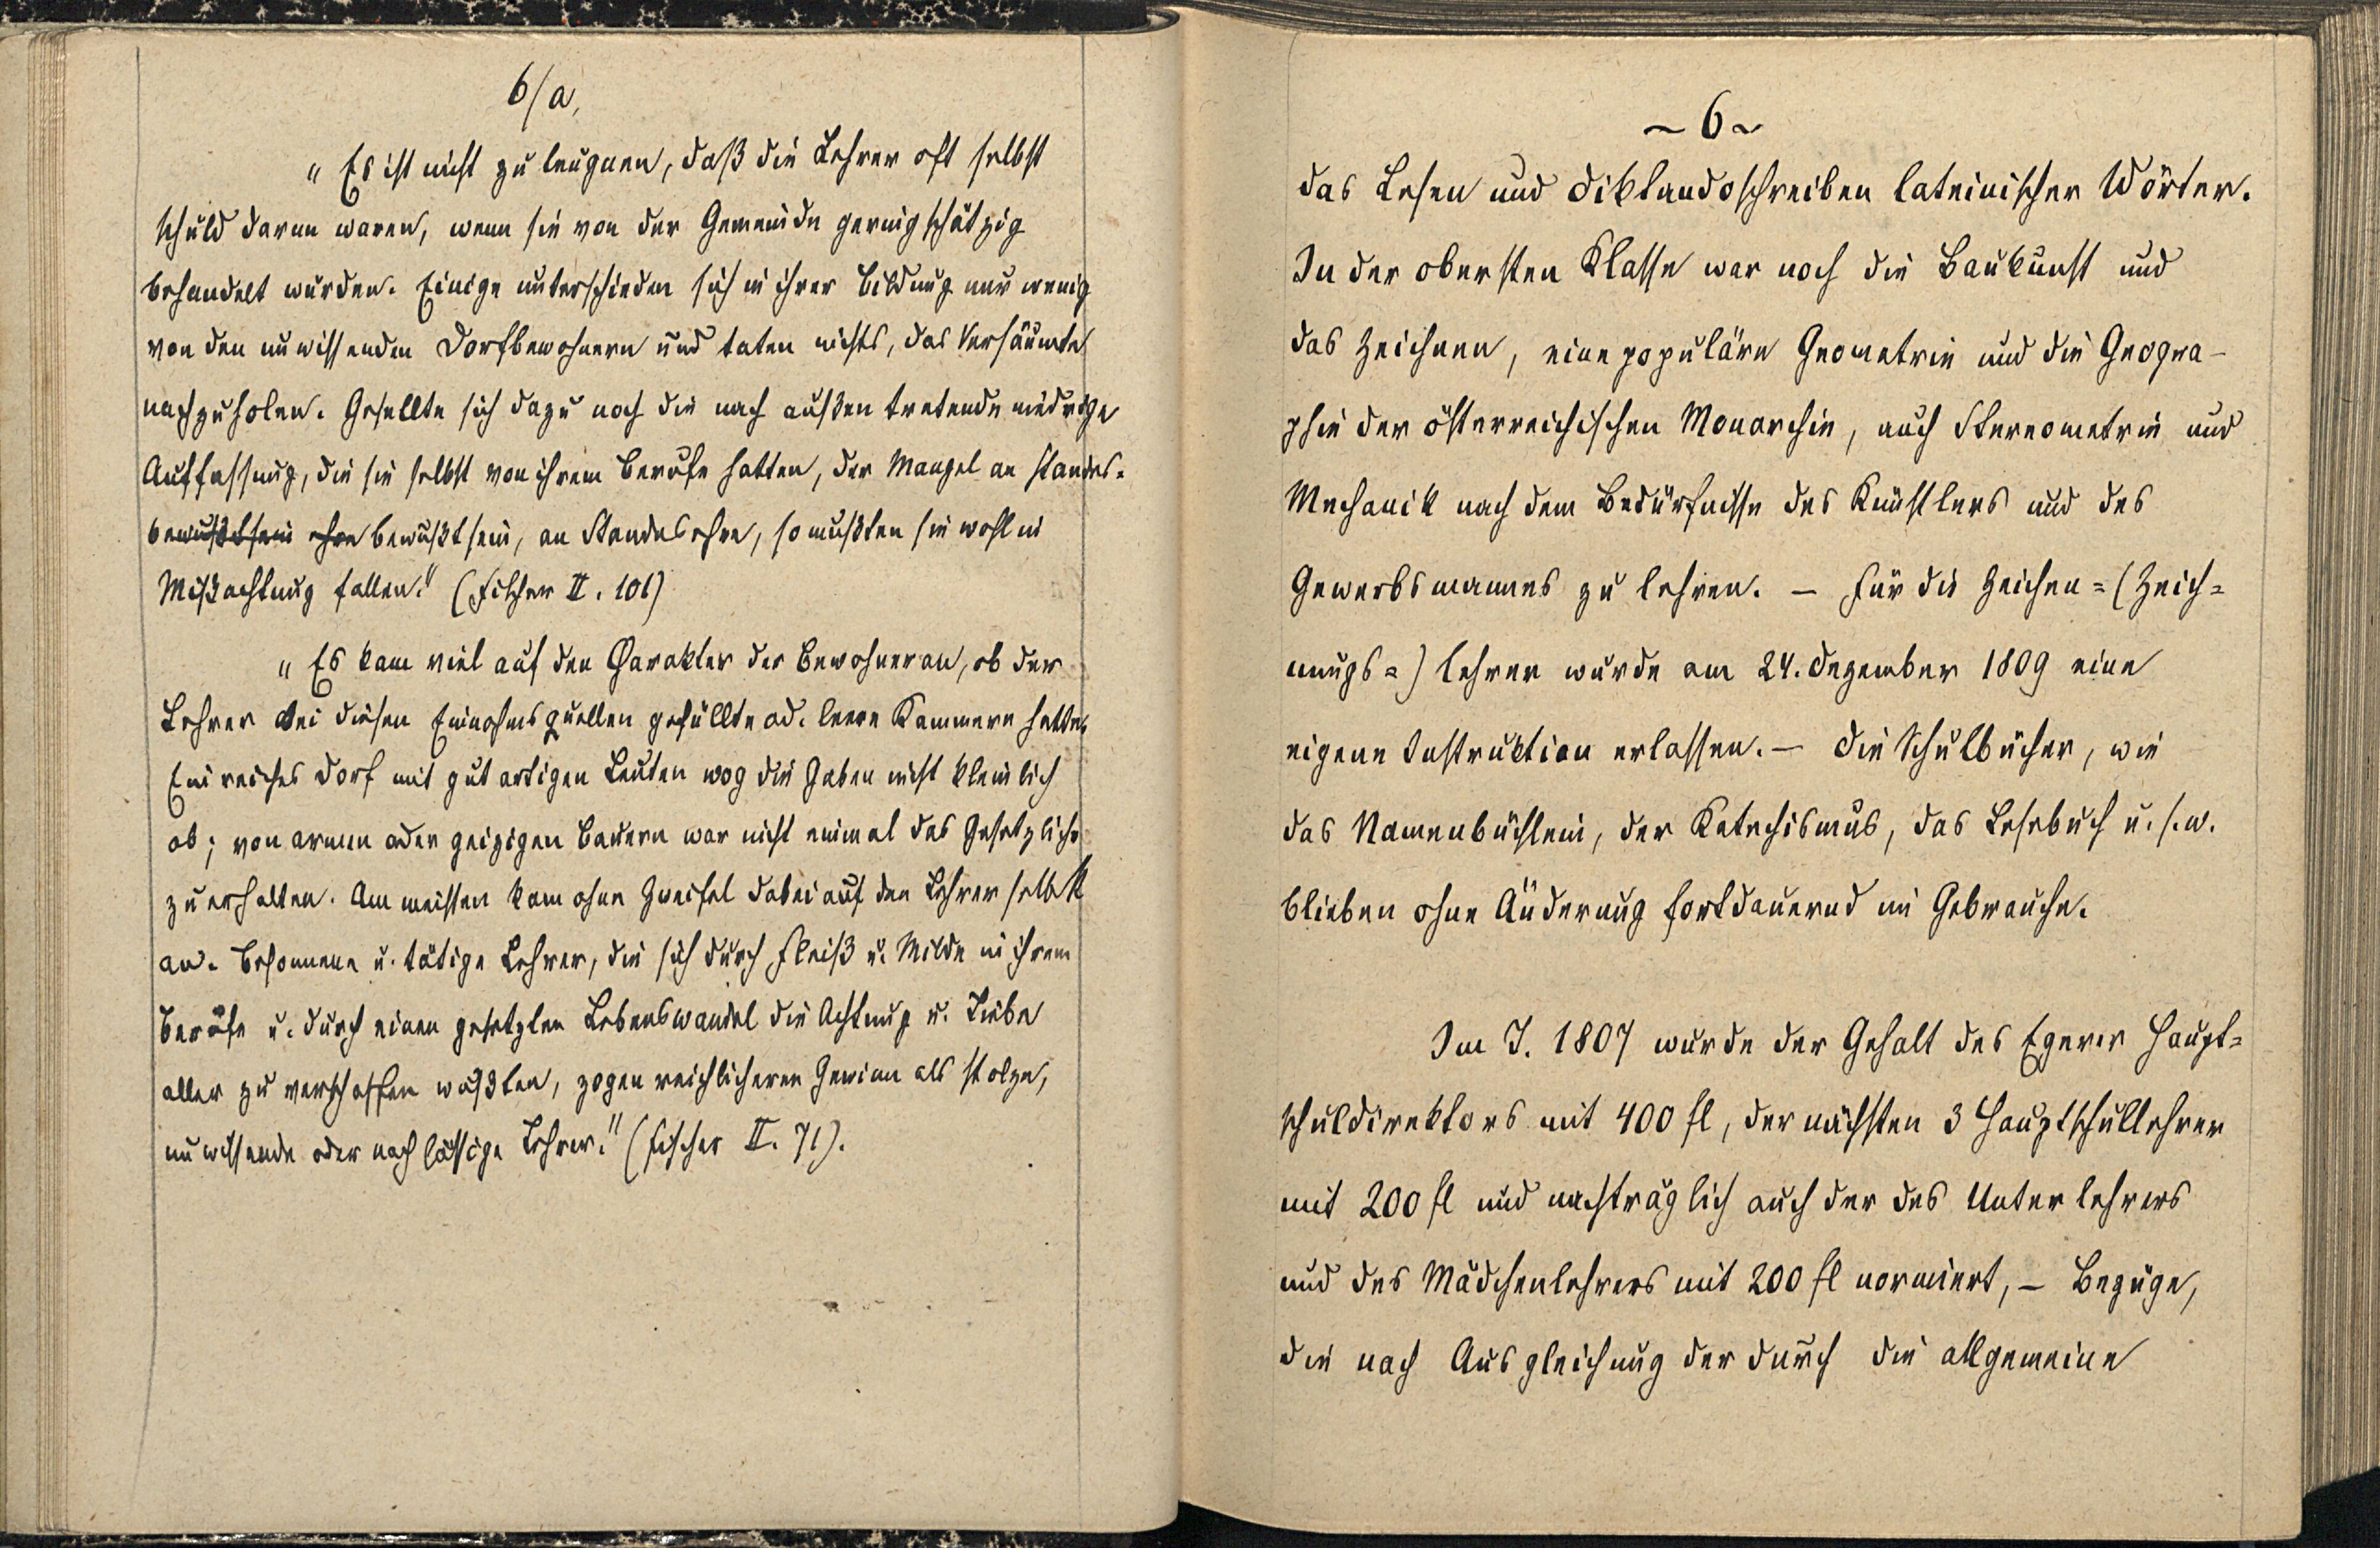 6/a,
„Es ist nicht zu leugnen, daß die Lehrer oft selbst
schuld daran waren, wenn sie von der Gemeinde geringschätzig
behandelt wurden. Einige unterschieden sich in ihrer Bildung nur wenig
von den unwissenden Dorfbewohnern und taten nichts, das Versäumte
nachzuholen. Gesellte sich dazu noch die nach außen tretende niedrige
Auffassung, die sie selbst von ihrem Berufe hatten, der Mangel an Standes-
bewußtsein ehre bewußtsein, an Standesehre, so mußten sie wohl in
Mißachtung fallen." (Fischer II. 101)
„Es kam viel auf den Charakter der Bewohner an, ob der
Lehrer bei diesen Einnahmsquellen gefüllte od. leere Kammern hatte.
Ein reiches Dorf mit gutartigen Leuten wog die Gaben nicht kleinlich
ab; von armen oder geizigen Bauern war nicht einmal das Gesetzliche
zu erhalten. Am meisten kam ohne Zweifel dabei auf den Lehrer selbst
an. Besonnene u. tätige Lehrer, die sich durch Fleiß u. Milde in ihrem
Berufe u. durch einen gesetzten Lebenswandel die Achtung u. Liebe
aller zu verschaffen wußten, zogen reichlicheren Gewinn als stolze,
unwissende oder nachlässige Lehrer." (Fischer II. 71).
~ 6 ~
das Lesen und Diktandoschreiben lateinischer Wörter.
In der obersten Klasse war noch die Baukunst und
das Zeichnen, eine populäre Geometrie und die Geogra-
phie der österreichischen Monarchie, auch Stereometrie und
Mechanik nach dem Bedürfnisse des Künstlers und des
Gewerbsmannes zu lehren. – Für die Zeichen=(Zeich=
nungs=) lehrer wurde am 24. Dezember 1809 eine
eigene Instruktion erlassen. – Die Schulbücher, wie
das Namenbüchlein, der Katechismus, das Lesebuch u. s. w.
blieben ohne Änderung fortdauernd im Gebrauche.
Im J. 1807 wurde der Gehalt des Egerer Haupt=
schuldirektors mit 400 fl, der nächsten 3 Hauptschullehrer
mit 200 fl und nachträglich auch der des Unterlehrers
und des Mädchenlehrers mit 200 fl normiert, – Bezüge,
die nach Ausgleichung der durch die allgemeine